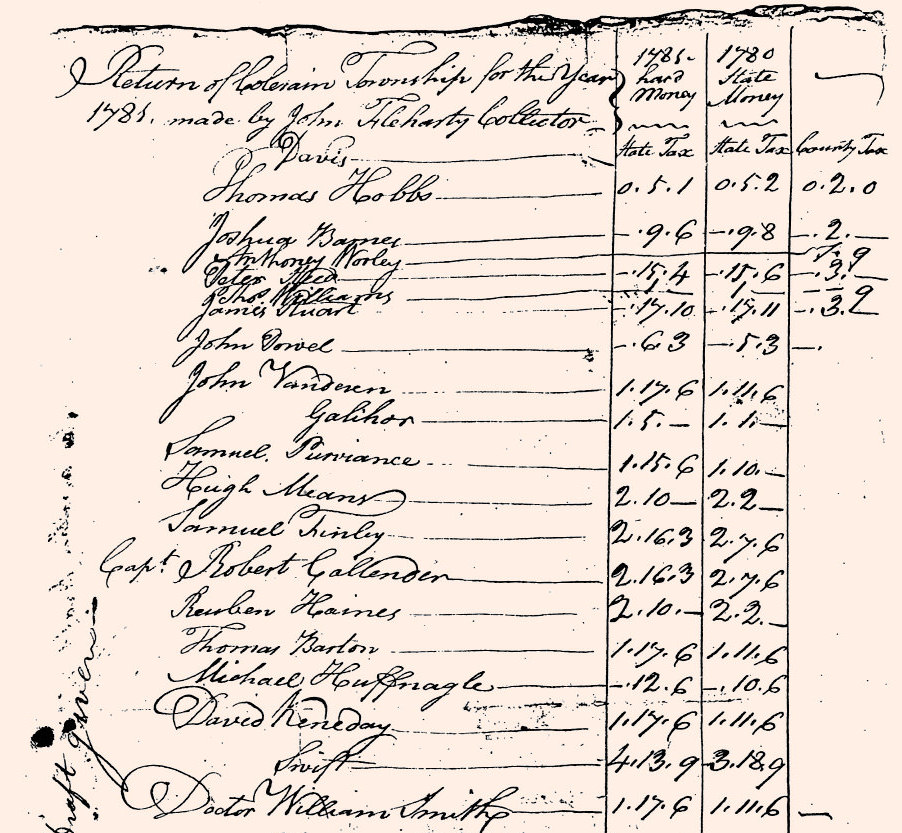 Return of Colerain Township for the Year 1781. 1780
hard State
Money Money
1781. made by John Fleharty Collector
Davis State Tax State Tax County Tax
Thomas Hobbs 0.5.1 0.5.2 0.2.0
Joshua Barnes -.9.6 -.9.8 -.2.-
Anthoney Worley 1.9
Peter -.15.4 -.15.6 -.3.-
Thos. Williams 1 1 9
James Stuart -.17.10 -.17.11 -.3.2
John Powel -.6.3 -.5.3 -.
John Vanderen 1.17.6 1.11.6
Galihor 1.5.- 1.1.-
Samuel. Purviance 1.15.6 1.10.-
Hugh Means 2.10- 2.2-
Samuel Finley 2.16.3 2.7.6
Capt. Robert Callender 2.16.3 2.7.6
Reuben Haines 2.10.- 2.2.-
Thomas Barton 1.17.6 1.11.6
Michael Huffnagle -.12.6 -.10.6
David Keneday 1.17.6 1.11.6
Swift 4.13.9 3.18.9
Doctor William Smith 1.17.6 1.11.6 -
draft given